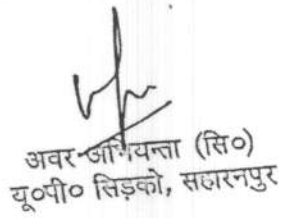 अवर अभियन्ता (सि०)
यू०पी० सिडको, सहारनपुर